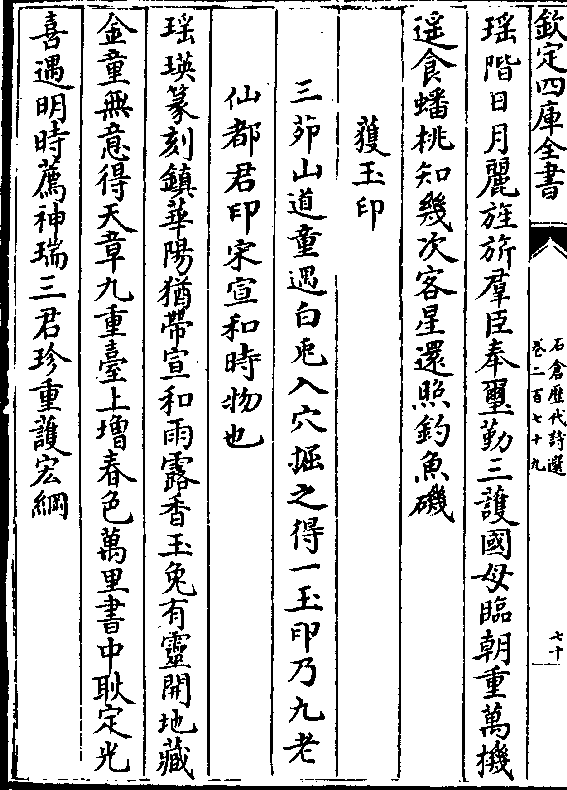 欽定四庫全書
石倉歷代詩選
卷二百七十九
七十
瑶階日月麗旌旂羣臣奉璽勤三護國母臨朝重萬機
遥食蟠桃知幾次客星還照釣魚磯
獲玉印
三茆山道童遇白兎入穴掘之得一玉印乃九老
仙都君印宋宣和時物也
瑶瑛篆刻鎮華陽猶帶宣和雨露香玉兔有靈開地藏
金童無意得天章九重臺上增春色萬里書中耿定光
喜遇明時薦神瑞三君珍重護宏綱